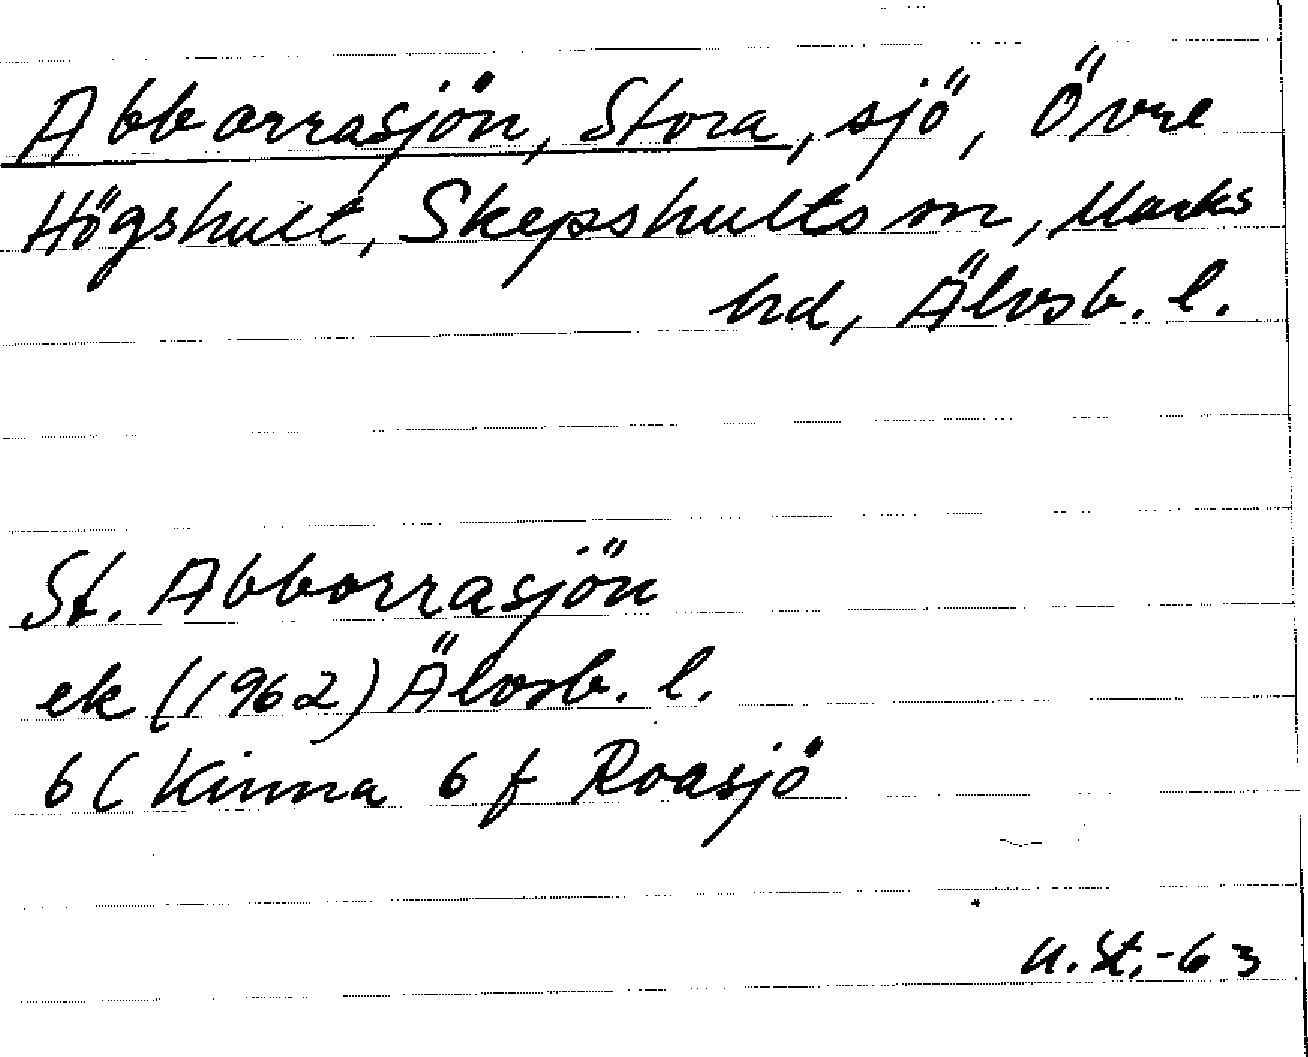 Abborrasjön, Stora, sjö, Övre
Högshult, Skepshults sn, Marks
hd, Älvsb. l.
St. Abborrasjön
ek (1962) Älvsb. l.
6C Kinna 6 f Roasjö
U.St.-63